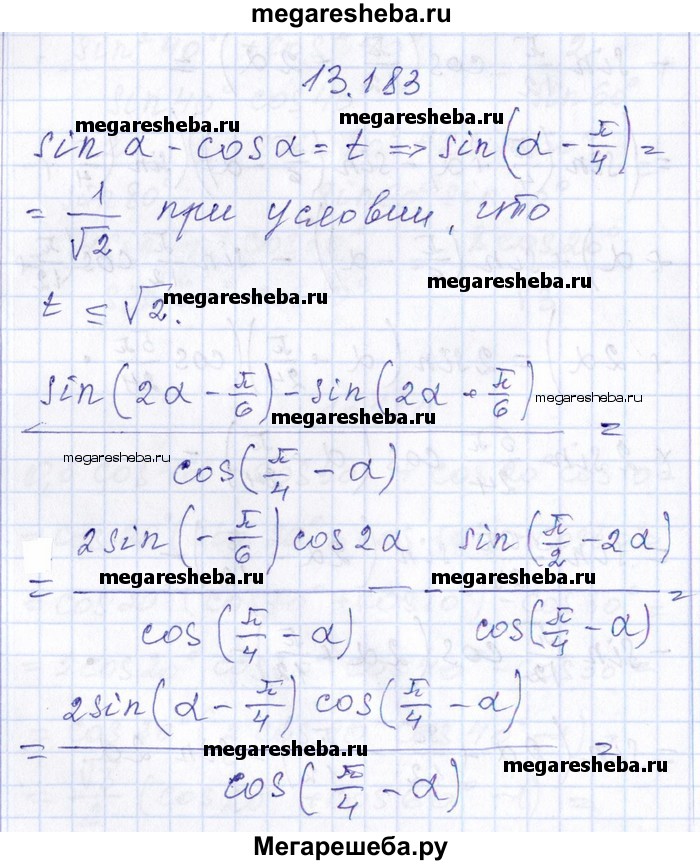 megaresheba.ru
13.183
megaresheba.ru megaresheba.ru
sin α - cos α = t => sin(α - π/4) =
= 1/√2 при условии, что
megaresheba.ru
t ≤ √2.
megaresheba.ru
sin(2α - π/6) - sin(2α + π/6) / cos(π/4 - α) =
megaresheba.ru
megaresheba.ru
= 2sin(-π/6) cos2α / cos(π/4 - α) = - sin(π/2 - 2α) / cos(π/4 - α) =
megaresheba.ru megaresheba.ru
= 2sin(α - π/4) cos(π/4 - α) / cos(π/4 - α) =
megaresheba.ru megaresheba.ru
Мегарешеба.ру